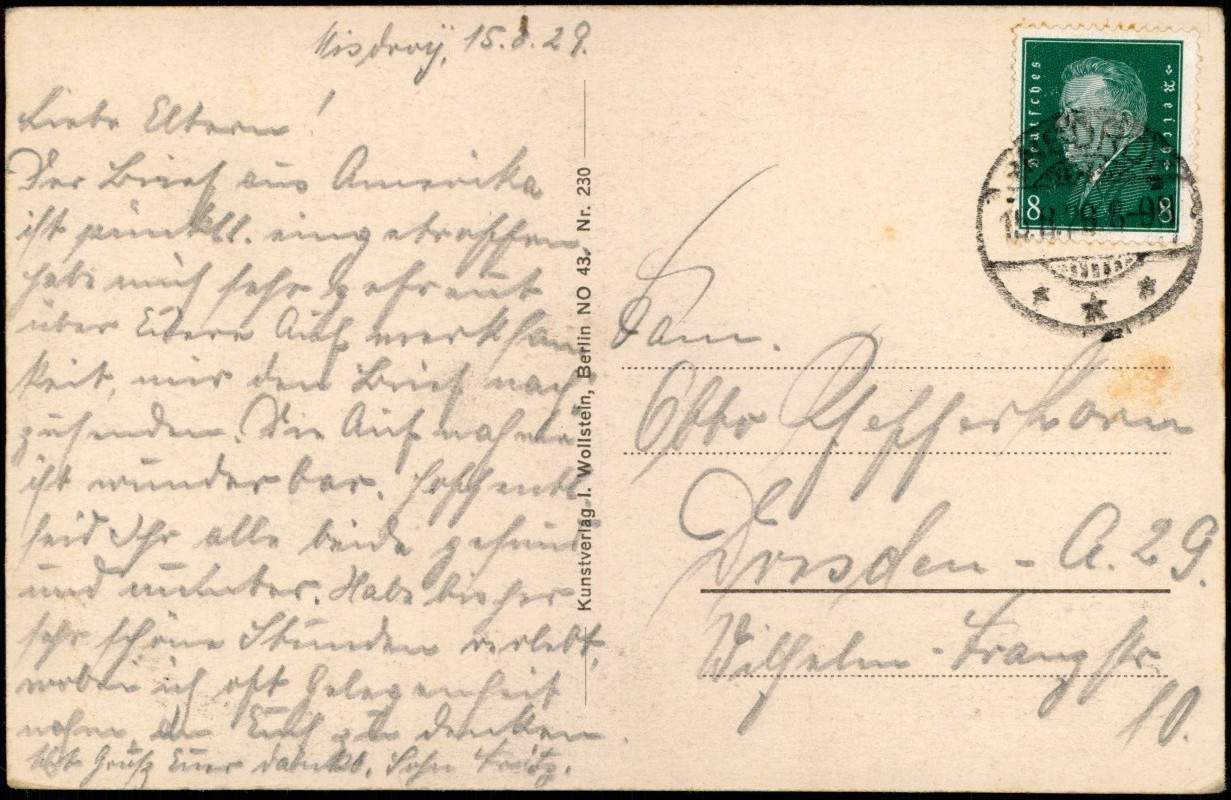 Misdroÿ, 15.8.29.
Liebe Eltern!
Der Brief aus Amerika
ist pünktl. eingetroffen,
habe mich sehr gefreut
über Euere Aufmerksam
keit, mir den Brief nach
zusenden. Die Aufnahme
ist wunderbar. Hoffentl.
seid Ihr alle beide gesund
und munter. Habe bisher
sehr schöne Stunden verlebt,
wobei ich oft Gelegenheit
nahm, an Euch zu denken.
Mit Gruß Euer dankb. Sohn Fritz.
Kunstverlag J. Wollstein, Berlin NO 43, Nr. 230
Deutsches Reich
8 8
Fam.
Otto Pfefferkorn
Dresden - A. 29.
Wilhelm-Franzstr
10.